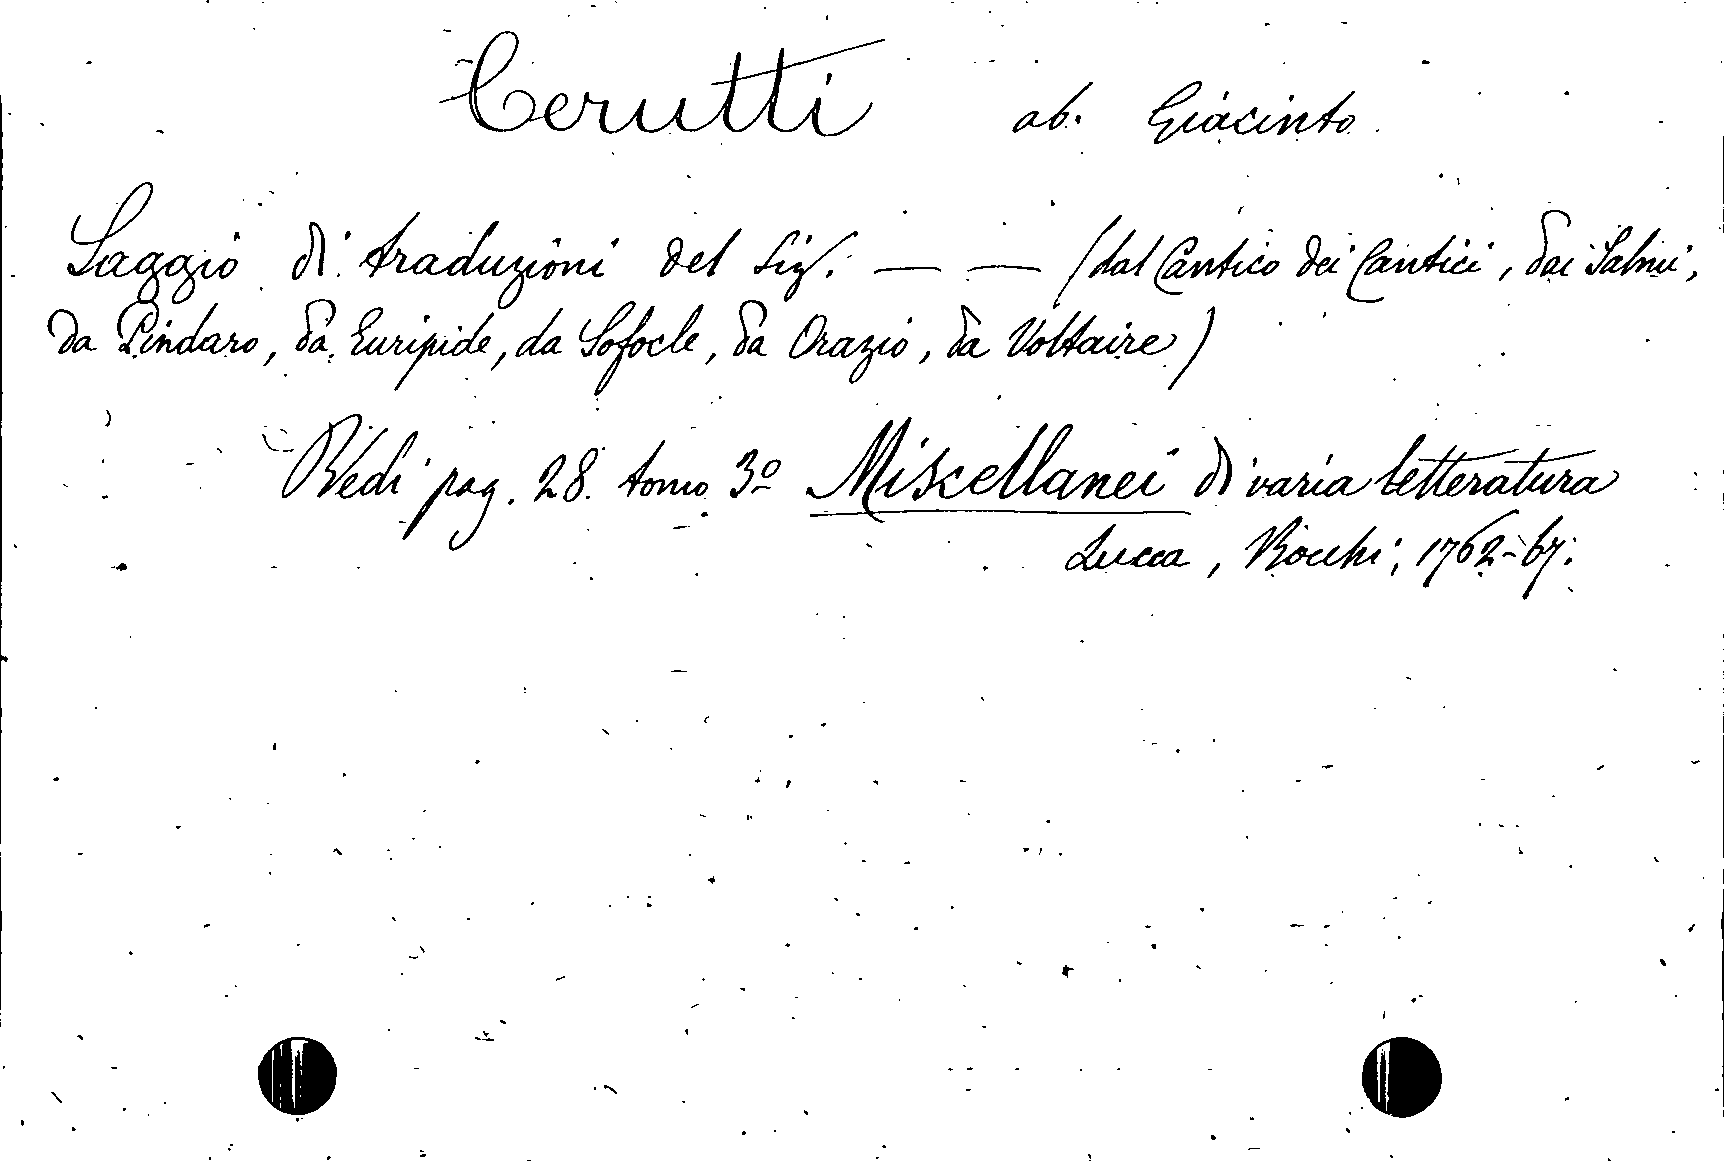 Cerutti ab. Giacinto
Saggio di traduzioni del Sig. — — (dal Cantico dei Cantici, dai Salmi,
da Pindaro, da Euripide, da Sofocle, da Orazio, da Voltaire)
Vedi pag. 28. tomo 3º Miscellanei di varia letteratura
Lucca, Rocchi, 1762-67.